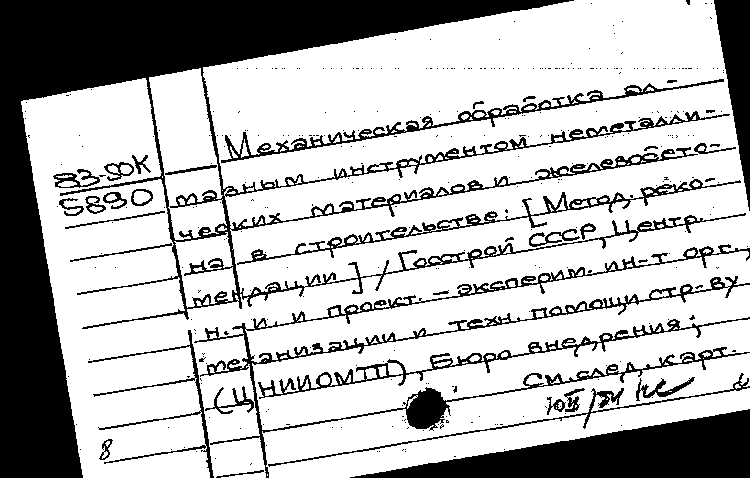 Механическая обработка ал-
83-50К
5890
мазным инструментом неметалли-
ческих материалов и железобето-
на в строительстве: [Метод. реко-
мендации] / Госстрой СССР, Центр.
н.-и. и проект.-эксперим. ин-т орг.,
механизации и техн. помощи стр-ву
(ЦНИИОМТП), Бюро внедрения;
См. след. карт.
8